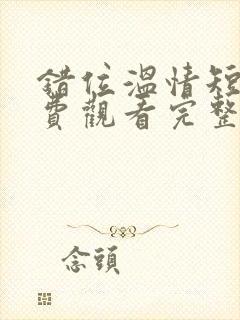 錯位溫情短
費觀看完整
念頭